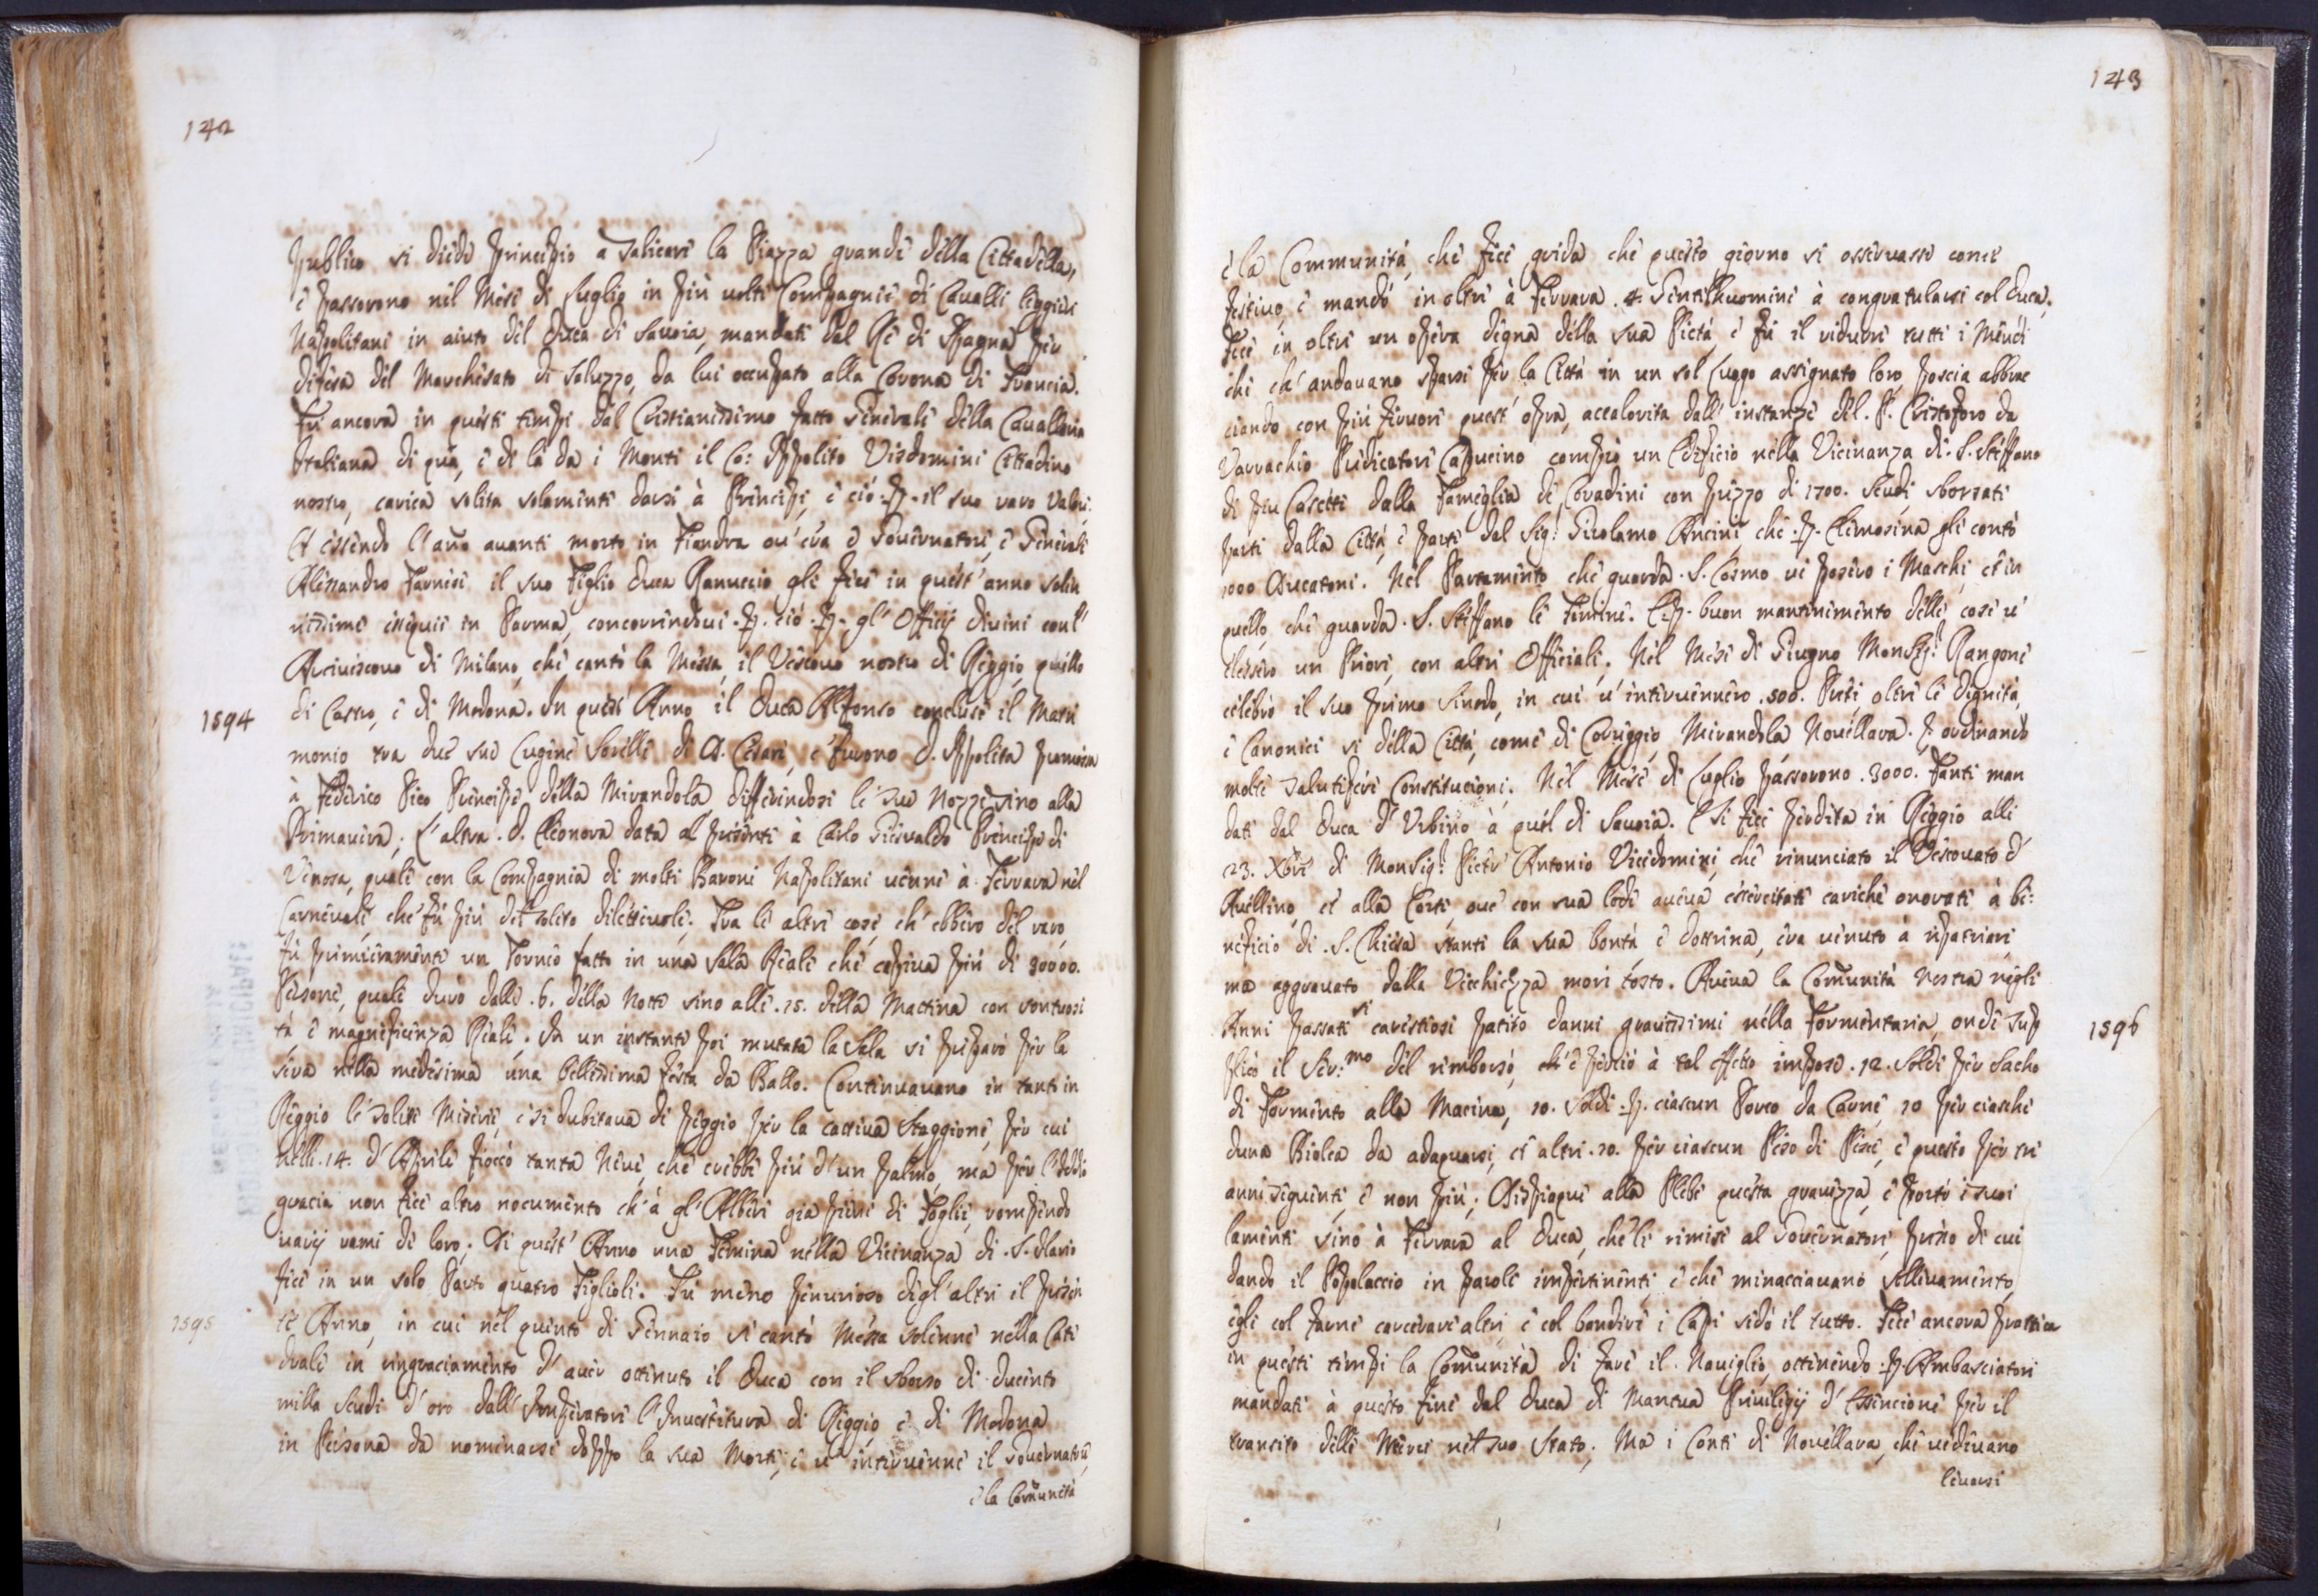 142
publico si diede principio a salicare la Piazza grande della Cittadella,
e passorono nel Mese di Luglio in più uolte Compagnie di Caualli leggieri
Napolitani in aiuto del Duca di Sauoia, mandati dal Rè di Spagna per
difesa del Marchesato di Saluzzo, da lui occupato alla Corona di Francia.
Fu ancora in questi tempi dal Cristianissimo fatto Generale della Caualleria
Italiana di quà, e di là da i Monti il Co: Ippolito Visdomini Cittadino
nostro, carica solita solamente darsi à Principi, e ciò p. il suo raro Valore.
Et essendo l'año auanti morto in Fiandra ou'era e Gouernatore, e Generale
Alessandro Farnese il suo Figlio Duca Ranuccio gli fece in quest'anno solen
nissime essequie in Parma, concorrendoui p. ciò p. gl'Officij diuini coll'
Arciuescouo di Milano, che cantò la Messa, il Vescouo nostro di Reggio, quello
1594
di Castro, e di Modona. In quest'Anno il Duca Alfonso concluse il Matri
monio tra due sue Cugine Sorelle di D. Cesare, e furono D. Ippolita primiera
à Federico Pico Principe della Mirandola differendosi le sue Nozze sino alla
Primauera; l'altra D. Eleonora data al presente à Carlo Giesualdo Principe di
Venosa, quale con la Compagnia di molti Baroni Napolitani uenne à Ferrara nel
Carneuale, che fù più del solito diletteuole. Tra le altre cose, ch'ebbero del raro,
fù primieramente un Torneo fatto in una Sala Reale che capiua più di 30000.
Persone, quale durò dalle .6. della Notte sino alle .15. della Mattina con sontuosi
tà, e magnificenza Reale. In un instante poi mutata la Sala si preparò per la
sera nella medesima una bellissima festa da Ballo. Continuauano in tanto in
Reggio le solite Miserie, e si dubitaua di peggio per la cattiua Staggione, per cui
nelli .14. d'Aprile fioccò tanta Neue, che crebbe più d'un palmo, ma per l'Iddio
gracia non fece altro nocumento ch'à gl'Alberi già pieni di Foglie, rompendo
uarij rami di loro. Di quest'Anno una Femina nella Vicinanza di .S. Ilario
fece in un solo Parto quatro Figlioli. Fù meno penurioso degl'altri il presen
1595
te Anno, in cui nel quinto di Gennaio si cantò Messa solenne nella Cate
drale in ringraciamento d'auer ottenuto il Duca con il sborso di ducento
milla Scudi d'oro dall'Imperatore l'Inuestitura di Reggio, e di Modona
in Persona da nominarsi doppo la sua Morte; e u'interuenne il Gouernatore,
e la Comunità
143
e la Communità, che fece grida che questo giorno si osseruasse come
festiuo, e mandò in oltre à Ferrara .4. Gentilhuomini à congratularsi col Duca.
Fece in oltre un opera degna della sua Pietà, e fù il ridurre tutti i Mendi
chi ch'andauano sparsi per la Città in un sol Luogo assignato loro, poscia abbrac
ciando con più feruore quest'opra, accalorita dall'instanze del .P. Cristoforo da
Varrachio Predicatore Capucino comprò un Edificio nella Vicinanza di .S. Steffano
di piu Casette dalla Fameglia de Coradini con prezzo di 1700. Scudi sborsati
parte dalla Città, e parte dal Sig: Girolamo Ancini, che p. Elimosina gli contò
1000 Ducatoni. Nel Partamento che guarda .S. Cosmo ui posero i Maschi, et in
quello, che guarda .S. Steffano le Femine. E p. buon mantenimento delle cose u'
elessero un Priore, con altri Officiali. Nel Mese di Giugno Monsig: Rangone
celebrò il suo primo Sinodo, in cui u'interuennero .500. Preti, oltre le Dignità,
e Canonici sì della Città, come di Coreggio Mirandola Nouellara. p. ordinando
molte salutifere Constitucioni. Nel Mese di Luglio passorono .3000. Fanti man
dati dal Duca d'Urbino à quel di Sauoia. E si fece perdita in Reggio alli
23. Xbre di Monsig: Pietr'Antonio Vicedomini, che rinunciato il Vescouato d'
Auellino, et alla Corte, oue con sua lode aueua essercitate cariche onorate à be:
neficio di .S. Chiesa stante la sua bontà e dottrina, era uenuto à ripatriare,
ma aggrauato dalla Vecchiezza morì tosto. Aueua la Comunità nostra negli
1596
Anni passati sì carestiosi patito danni grauissimi nella Formentaria, onde sup
plicò il Ser:mo del rimborsò, ch'è perciò à tal effetto impose .12. Soldi per Sacho
di Formento alla Macina, 10. Soldi p. ciascun Porco da Carne, 10 per ciasche
duna Biolca da adaquarsi, et altri .10. per ciascun Peso di Pesce, e questo per tre
anni seguenti, e non più; Dispiaque alla Plebe questa grauezza, e portò i suoi
lamenti sino à Ferrara al Duca, che li rimise al Gouernatore, presso di cui
dando il Popolaccio in parole impertinenti, e che minacciauano solleuamento,
egli col farne carcerare altri, e col bandire i Capi sedò il tutto. Fece ancora prattica
in questi tempi la Comunità di fare il Nauiglio, ottenendo p. Ambasciatori
mandati à questo fine dal Duca di Mantua Priuilegij d'Essencione per il
transito delle Merci nel suo Stato. Ma i Conti di Nouellara, che uedeuano
leuarsi